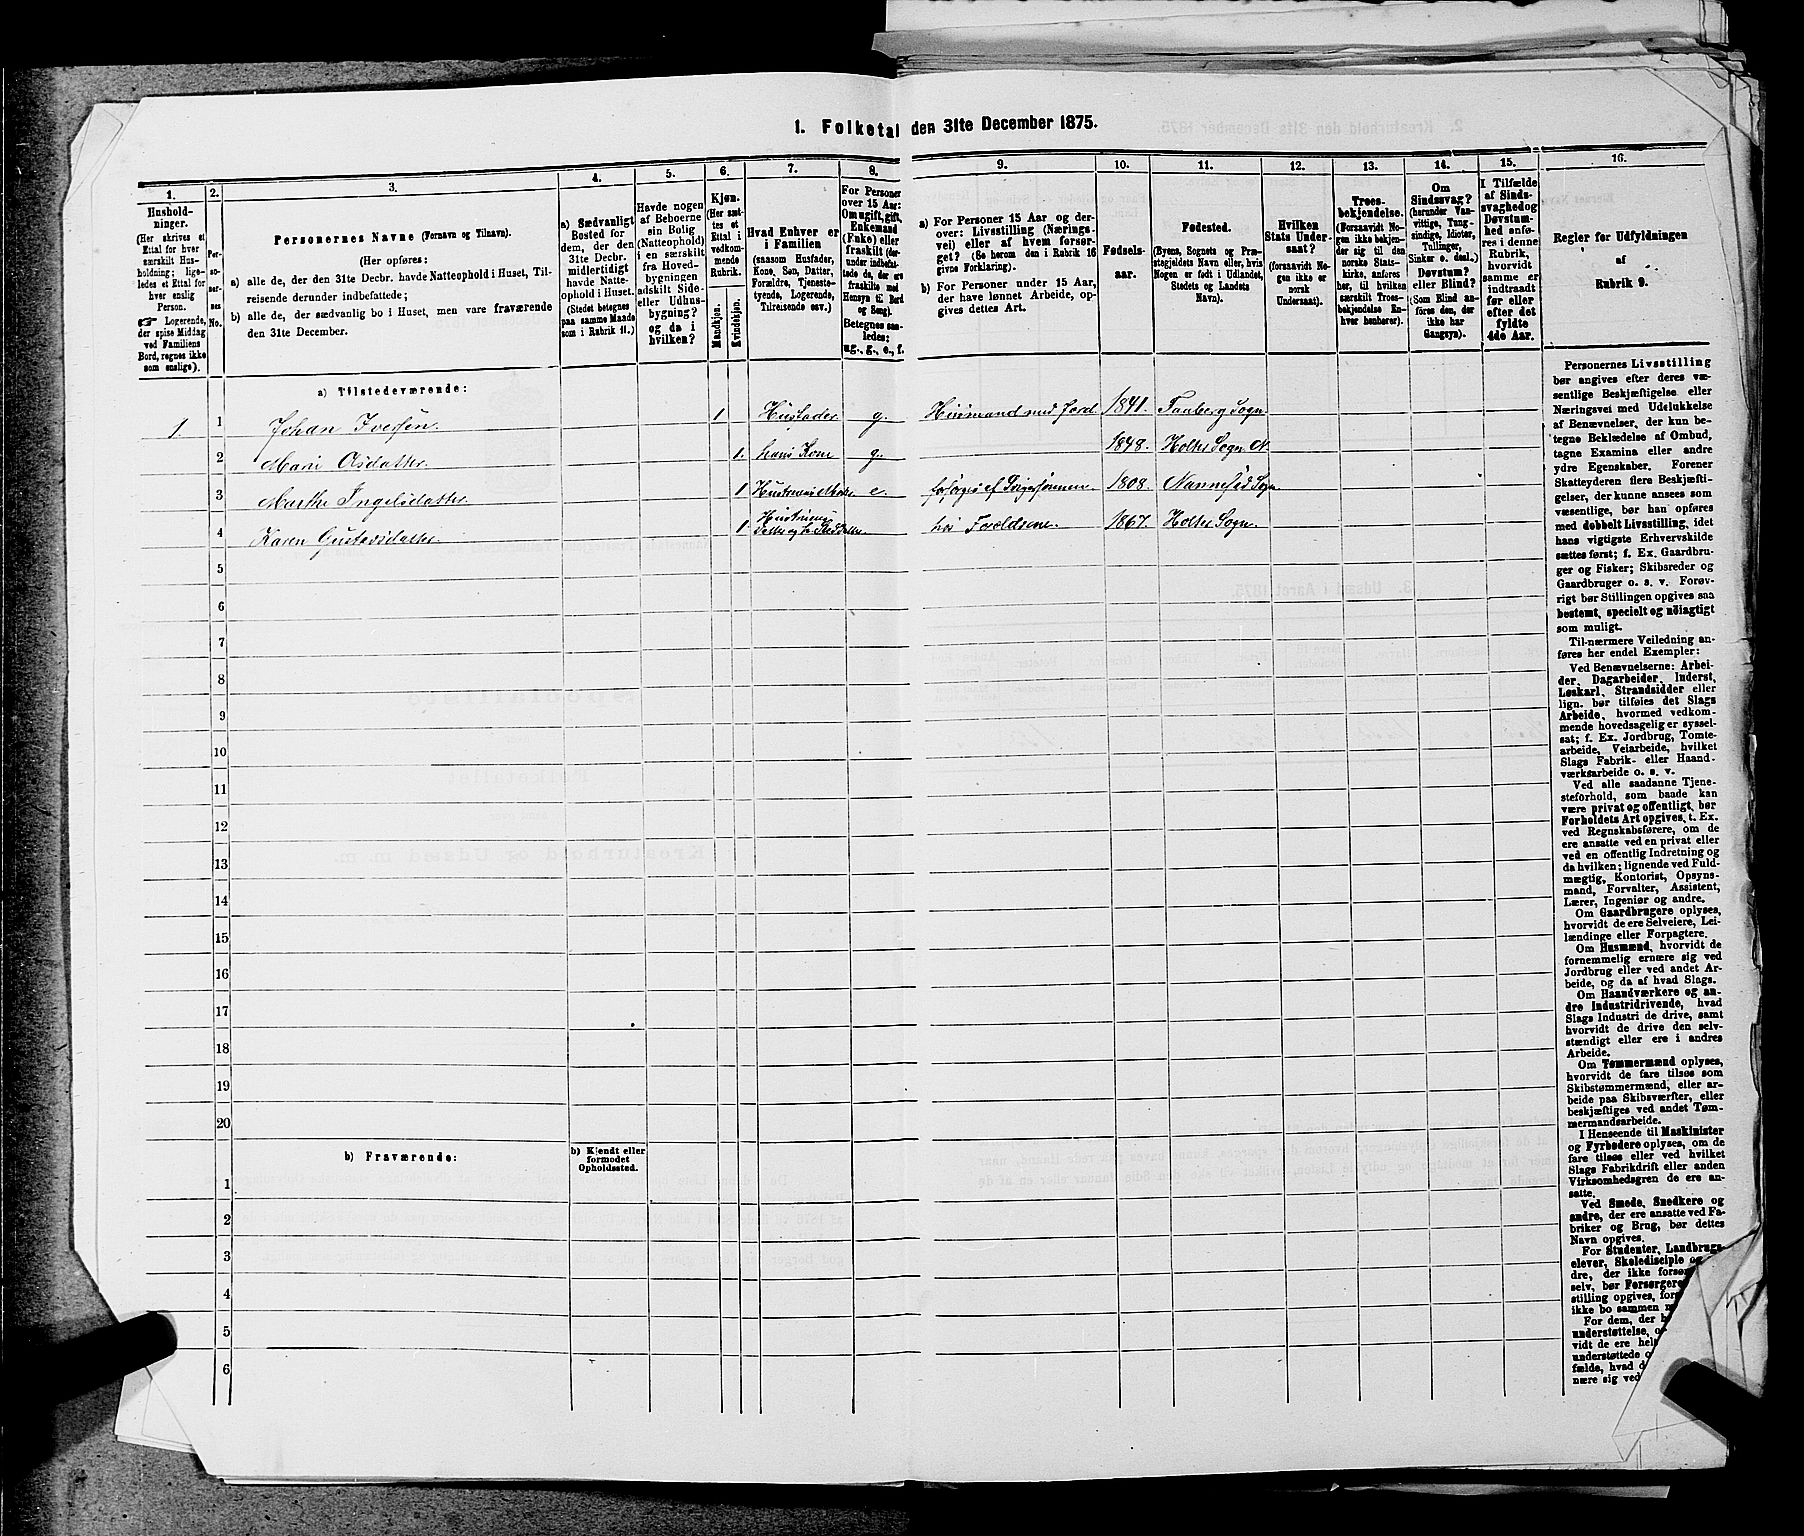 1. Folketal den 31te December 1875.
1.
Hushold-
ninger.
(Her skrives et
Ettal for hver
særskilt Hus-
holdning; lige-
ledes et Ettal for
hver enslig
Person.
☞ Logerende,
der spise Middag
ved Familiens
Bord, regnes ikke
som enslige).
2.
Per-
so-
ner-
nes
No.
3.
Personernes Navne (Fornavn og Tilnavn).
(Her opføres:
a) alle de, der den 31te Decbr. havde Natteophold i Huset, Til-
reisende derunder indbefattede;
b) alle de, der sædvanlig bo i Huset, men vare fraværende
den 31te December.
4.
a) Sædvanligt
Bosted for
dem, der den
31te Decbr.
midlertidigt
havde Natte-
ophold i Huset.
(Stedet betegnes
paa samme Maade
som i Rubrik 11.)
5.
Havde nogen
af Beboerne
sin Bolig
(Natteophold)
i en særskilt
fra Hoved-
bygningen
adskilt Side-
eller Udhus-
bygning?
og da i
hvilken?
6.
Kjøn.
(Her sæt-
tes et
Ettal i
vedkom-
mende
Rubrik.
Mandkjøn.
Kvindekjøn.
7.
Hvad Enhver er
i Familien
(saasom Husfader,
Kone, Søn, Datter,
Forældre, Tjeneste-
tyende, Logerende,
Tilreisende osv.)
8.
For Personer
over 15 Aar:
Om ugift, gift,
Enkemand
(Enke) eller
fraskilt (der-
under indbefat-
tede de, der ere
fraskilte med
Hensyn til Bord
og Seng).
Betegnes saa-
ledes:
ug., g., e., f.
9.
a) For Personer 15 Aar og der-
over: Livsstilling (Nærings-
vei) eller af hvem forsør-
get? (Se herom den i Rubrik 16
givne Forklaring).
b) For Personer under 15 Aar,
der have lønnet Arbeide, op-
gives dettes Art.
10.
Fødsels-
aar.
11.
Fødested.
(Byens, Sognets og Præ-
stegjeldets Navn eller, hvis
Nogen er født i Udlandet,
Stedets og Landets
Navn).
12.
Hvilken
Stats Under-
saat?
(forsaavidt No-
gen ikke er
norsk
Undersaat).
13.
Troes-
bekjendelse.
(Forsaavidt No-
gen ikke bekjen-
der sig til den
norske Stats-
kirke, anføres
her, til hvilken
særskilt Troes-
bekjendelse En-
hver henhører).
14.
Om
Sindssvag?
(herunder Van-
vittige, Tung-
sindige, Idioter,
Tullinger,
Sinker o. desl.)
Døvstum?
eller Blind?
(Som Blind an-
føres den, der
ikke har
Gangsyn).
15.
I Tilfælde
af Sinds-
svaghed og
Døvstum-
hed anfø-
res i denne
Rubrik,
hvorvidt
samme er
indtraadt
før eller
efter det
fyldte
4de Aar.
16.
Regler for Udfyldningen
af
Rubrik 9.
a) Tilstedeværende:
1. 1 Johan Iversen. 1. Husfader g. Huusmand med Jord 1841. Faaberg Sogn
2 Mari Olsdatter. 1. hans Kone g. 1848. Holter Sogn N.
3 Marthe Ingelsdatter 1 Hustruens Moder e. forsørges af Svigersønnen. 1808. Nannestad Sogn
4 Karen Gustavsdatter 1. Hustruens hos Forældrene. 1867. Holter Sogn.
5
6
7
8
9
10
11
12
13
14
15
16
17
18
19
20
b) Fraværende:
b) Kjendt eller
formodet
Opholdssted.
1
2
3
4
5
6
Personernes Livsstilling
bør angives efter deres væ-
sentlige Beskjæftigelse eller
Næringsvei med Udelukkelse
af Benævnelser, der kun be-
tegne Beklædelse af Ombud,
tagne Examina eller andre
ydre Egenskaber. Forener
Skatteyderen flere Beskjæfti-
gelser, der kunne ansees som
væsentlige, bør han opføres
med dobbelt Livsstilling, idet
hans vigtigste Erhvervskilde
sættes først; f. Ex. Gaardbru-
ger og Fisker; Skibsreder og
Gaardbruger o. s. v. Forøv-
rigt bør Stillingen opgives saa
bestemt, specielt og nöiagtigt
som muligt.
Til nærmere Veiledning an-
føres her endel Exempler:
Ved Benævnelserne: Arbei-
der, Dagarbeider, Inderst,
Løskarl, Strandsidder eller
lign. bør tilføies det Slags
Arbeide, hvormed vedkom-
mende hovedsagelig er syssel-
sat; f. Ex. Jordbrug, Tomte-
arbeide, Veiarbeide, hvilket
Slags Fabrik- eller Haand-
værksarbeide o. s. v.
Ved alle saadanne Tjene-
steforhold, som baade kan
være privat og offentligt, bør
Forholdets Art opgives, t. Ex.
ved Regnskabsførere, om de
ere ansatte ved en privat eller
ved en offentlig Indretning og
da hvilken; lignende ved Fuld-
mægtig, Kontorist, Opsyns-
mand, Forvalter, Assistent,
Lærer, Ingeniør og andre.
Om Gaardbrugere oplyses,
hvorvidt de ere Selveiere, Lei-
lændinge eller Forpagtere.
Om Husmænd, hvorvidt de
fornemmelig ernære sig ved
Jordbrug eller ved andet Ar-
beide, og da af hvad Slags.
Om Haandværkere og an-
dre Industridrivende, hvad
Slags Industri de drive, samt
hvorvidt de drive den selv-
stændigt eller ere i andres
Arbeide.
Om Tømmermænd oplyses,
hvorvidt de fare tilsøs som
Skibstømmermænd, eller ar-
beide paa Skibsværfter, eller
beskjæftiges ved andet Tøm-
mermandsarbeide.
I Henseende til Maskinister
og Fyrbødere oplyses, om de
fare tilsøs eller ved hvilket
Slags Fabrikdrift eller anden
Virksomhedsgren de ere an-
satte.
Ved Smede, Snedkere og
andre, der ere ansatte ved Fa-
briker og Brug, bør dettes
Navn opgives.
For Studenter, Landbrugs-
elever, Skoledisciple og
dre, der ikke forsør
selv, bør Forsørgere
stilling opgives, for
ikke bo sammen
For dem, der
understøttelse,
vidt de ere hel
understøttede
fælde, hvad d
nære sig ved